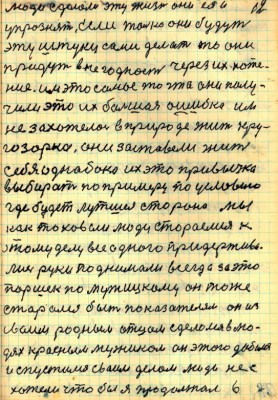 люди сделали эту жизнь они ея и 12
упрознят, если только они будут
эту штуку сами делат то они
придут в негодност через их хоте-
ние. им это самое то што они полу-
чили это их большая ошибка им
не захотелос в природе жит кру-
гозорка, они заставели жит
себя однабоко их это привычка
выбират по примеру по условию
где будет лутшия сторона мы
как токовыи люди стораемся к
этому делу все одного придержива-
лис руки поднимали всегда за это
поршек по мужицкому он тоже
старался быт показателям он из
своим родным отцом сделался в лю-
дях красным мужиком он этого добился
и спустился своим делом люди не с
хотели что бы я продолжал 6